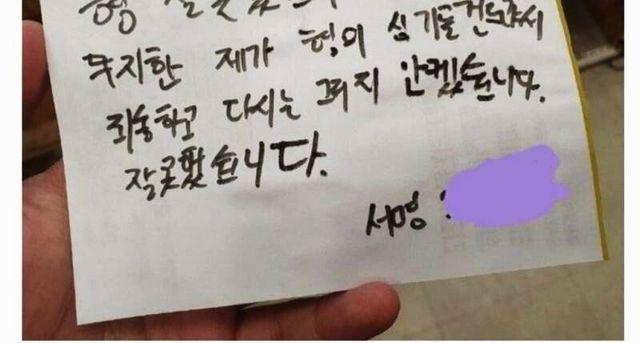 형
무지한 제가 형의 심기를 건드려서
죄송하고 다시는 그러지 안켔습니다.
잘못했습니다.
서명 :